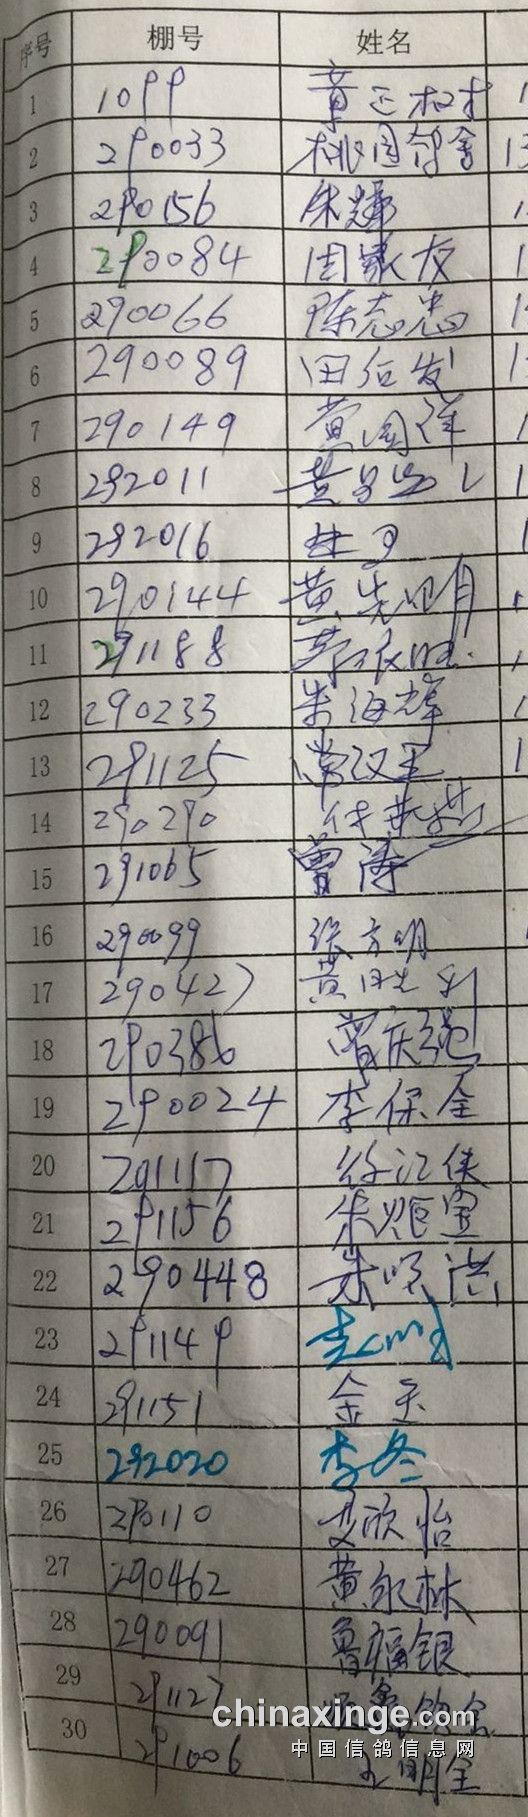 序号 棚号 姓名
1 1099 章正权
2 290033 桃园鸽舍
3 290156 朱辉
4 290084 周家友
5 290066 陈志忠
6 290089 田后发
7 290149 黄国祥
8 292011 黄
9 292016
10 290144 黄先明
11 291188
12 290233 朱海辉
13 291125 常汉玉
14 290290
15 291065 曾涛
16 290099 张方明
17 290427 黄胜利
18 290386 曾庆
19 290024 李保全
20 291117 徐江侠
21 291156 朱
22 290448 朱顺洪
23 291149
24 291151 金玉
25 292020 李冬
26 290110 艾欣怡
27 290462 黄永林
28 290091 鲁福银
29 291127
30 291006 王明全
chinaxinge.com
中国信鸽信息网